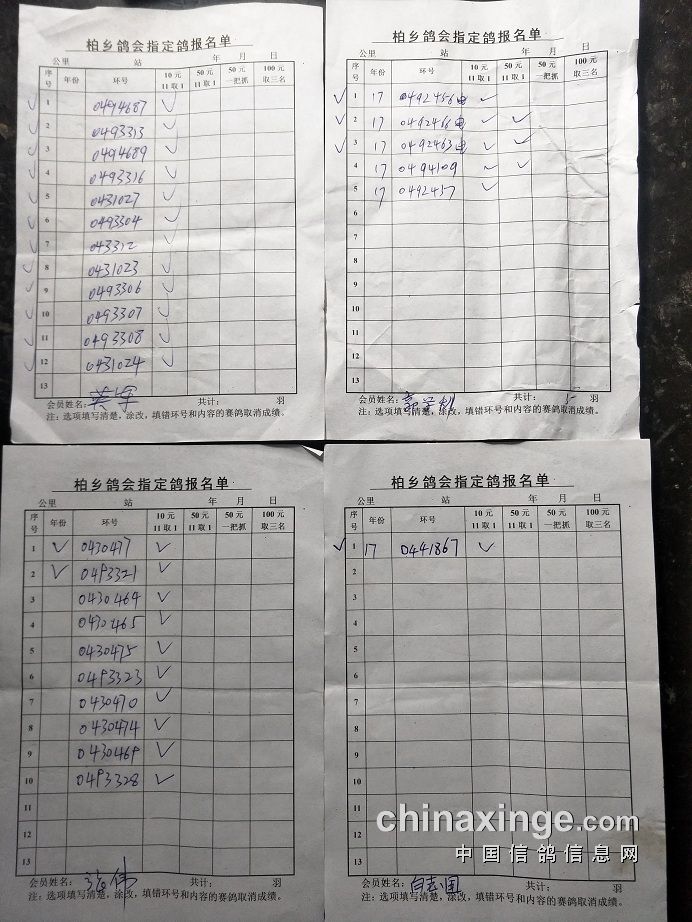 柏乡鸽会指定鸽报名单
公里 站 年 月 日
序号 年份 环号 10元 11取1 50元 11取1 50元 一把抓 100元 取三名
✓ 1 0494687 ✓
✓ 2 0493313 ✓
✓ 3 0494689 ✓
✓ 4 0493316 ✓
✓ 5 0431027 ✓
✓ 6 0493304 ✓
✓ 7 043312 ✓
✓ 8 0431023 ✓
✓ 9 0493306 ✓
✓ 10 0493307 ✓
✓ 11 0493308 ✓
✓ 12 0431024 ✓
13
会员姓名： 共计： 羽
注：选项填写清楚，涂改，填错环号和内容的赛鸽取消成绩。
柏乡鸽会指定鸽报名单
公里 站 年 月 日
序号 年份 环号 10元 11取1 50元 11取1 50元 一把抓 100元 取三名
✓ 1 17 0492456电 ✓
✓ 2 17 0492466电 ✓ ✓
✓ 3 17 0492463电 ✓ ✓
4 17 0494109 ✓ ✓
5 17 0492457 ✓
6
7
8
9
10
11
12
13
会员姓名：郭 共计： 5 羽
注：选项填写清楚，涂改，填错环号和内容的赛鸽取消成绩。
柏乡鸽会指定鸽报名单
公里 站 年 月 日
序号 年份 环号 10元 11取1 50元 11取1 50元 一把抓 100元 取三名
1 ✓ 0430477 ✓
2 ✓ 0493321 ✓
3 0430464 ✓
4 0430465 ✓
5 0430475 ✓
6 0493323 ✓
7 0430470 ✓
8 0430474 ✓
9 0430469 ✓
10 0493328 ✓
11
12
13
会员姓名： 伟 共计： 羽
注：选项填写清楚，涂改，填错环号和内容的赛鸽取消成绩。
柏乡鸽会指定鸽报名单
公里 站 年 月 日
序号 年份 环号 10元 11取1 50元 11取1 50元 一把抓 100元 取三名
✓ 1 17 0441867 ✓
2
3
4
5
6
7
8
9
10
11
12
13
会员姓名：白志国 共计： 羽
注：选项填写清楚，涂改，填错环号和内容的赛鸽取消成绩。
chinaxinge.com
中国信鸽信息网